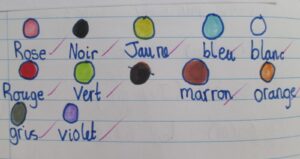 Rose Noir Jaune bleu blanc
Rouge Vert marron orange
gris violet